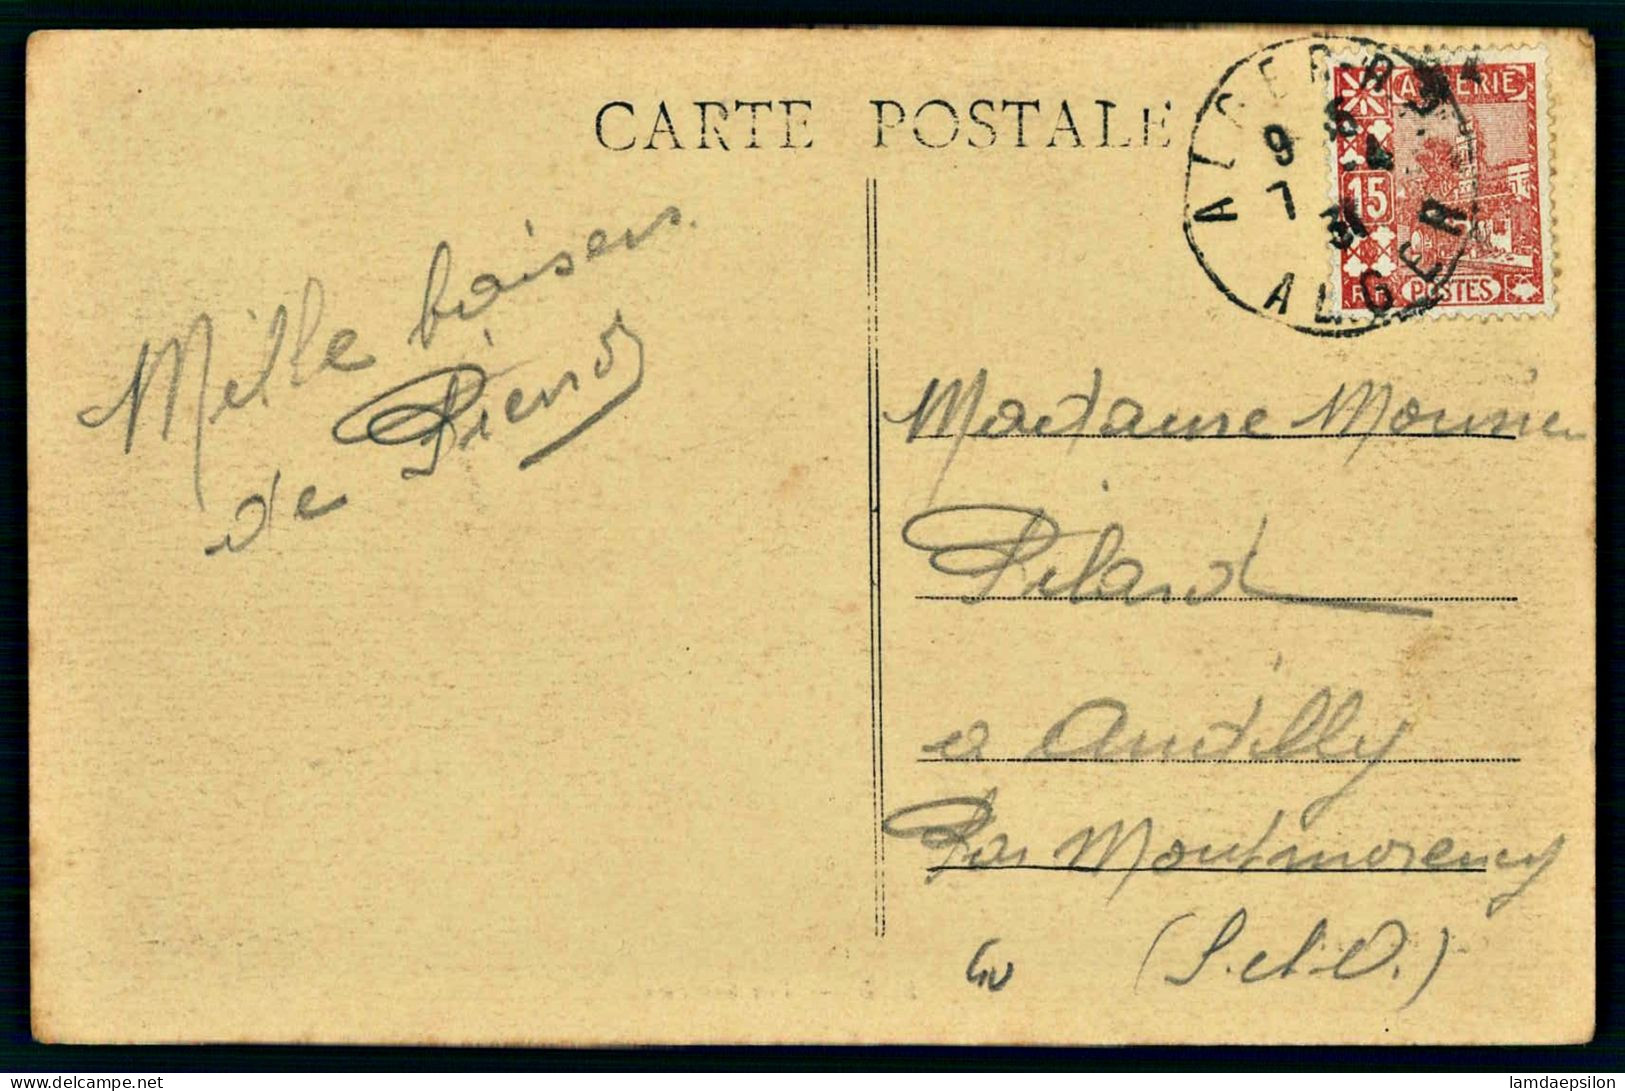 CARTE POSTALE
ALGER R.P.
9 16
7 -4
31
ALGER
ALGERIE
15
RF POSTES
Mille baisers
de Pierrot
Madame
Pilard
à Andilly
Par Montmorency
(S. et O.)
lamdaepsilon